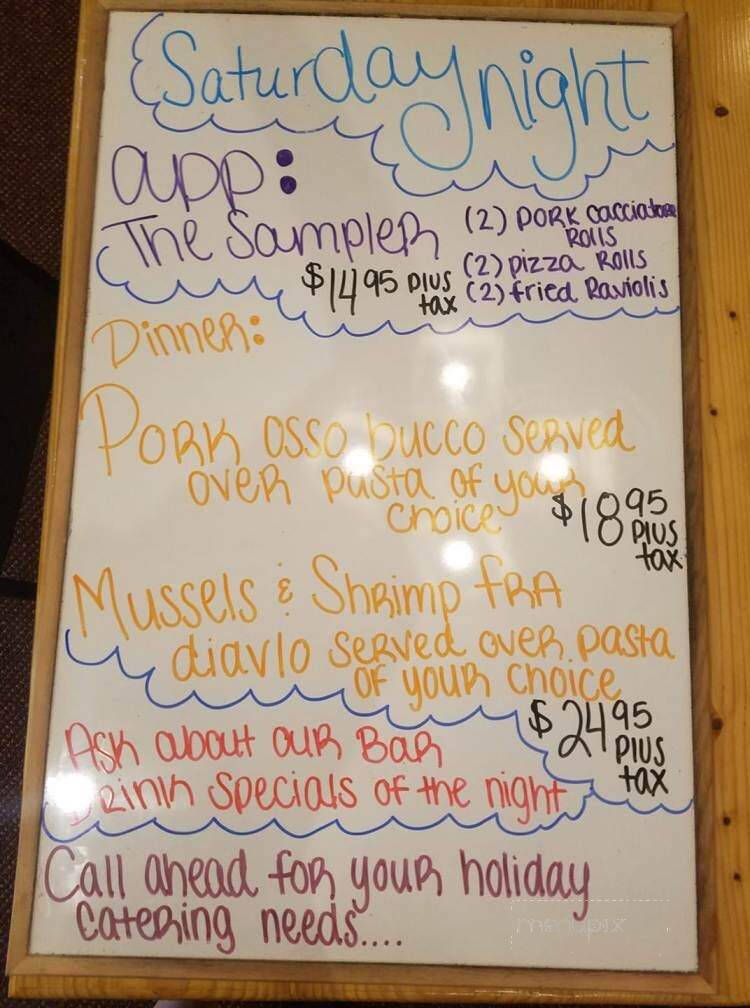 Saturday night
app:
The Sampler
$14.95 plus tax
(2) Pork cacciatore
Rolls
(2) pizza Rolls
(2) fried Raviolis
Dinner:
Pork osso bucco served
over pasta of your
choice
$18.95
plus
tax
Mussels & Shrimp fra
diavlo served over pasta
of your choice
$24.95
plus
tax
Ask about our Bar
Drink Specials of the night
Call ahead for your holiday
catering needs....
menupix